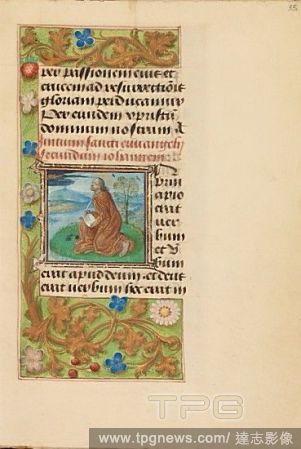 35
per passionem eius et
crucem ad resurrectiois
gloriam perducamur
Per eundem xpristu
dominum nostrum A
Initium sancti euuangelii
secundum iohannem
prin
cipio
erat
ver
bum
et v
bum
erat apud deum et deus
erat verbum hoc erat in
TPG
www.tpgnews.com/達志影像